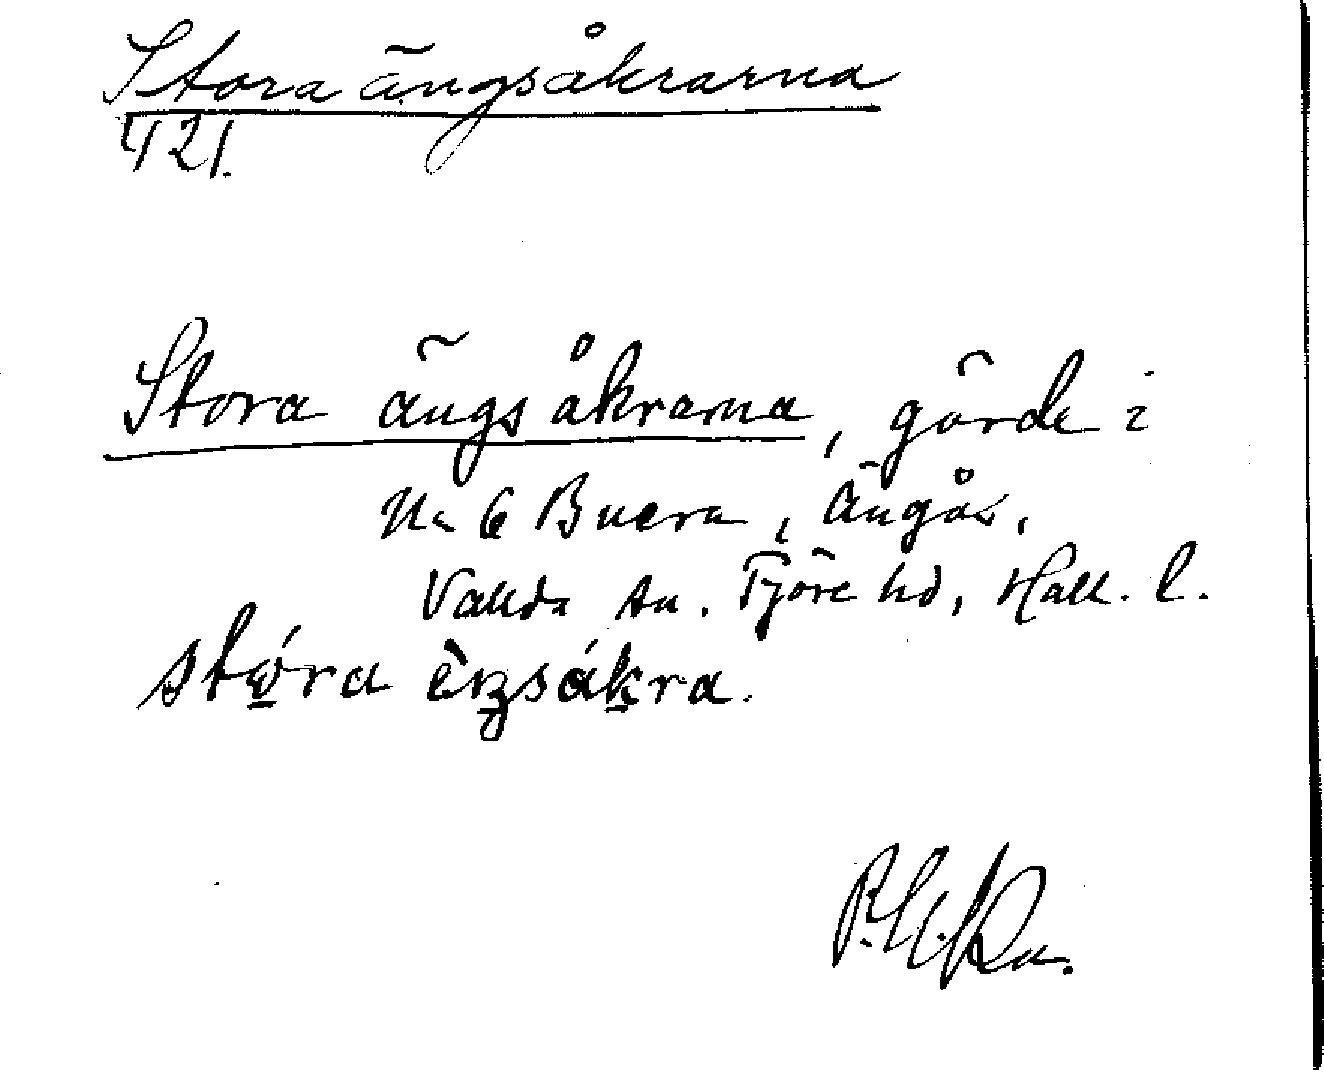 Stora ängsåkrarna
421.
Stora ängsåkrarna, gärde i
N:o 6 Buera, Ängås,
Vallda sn. Fjäre hd, Hall. l.
stóra ä̀ŋsákra.